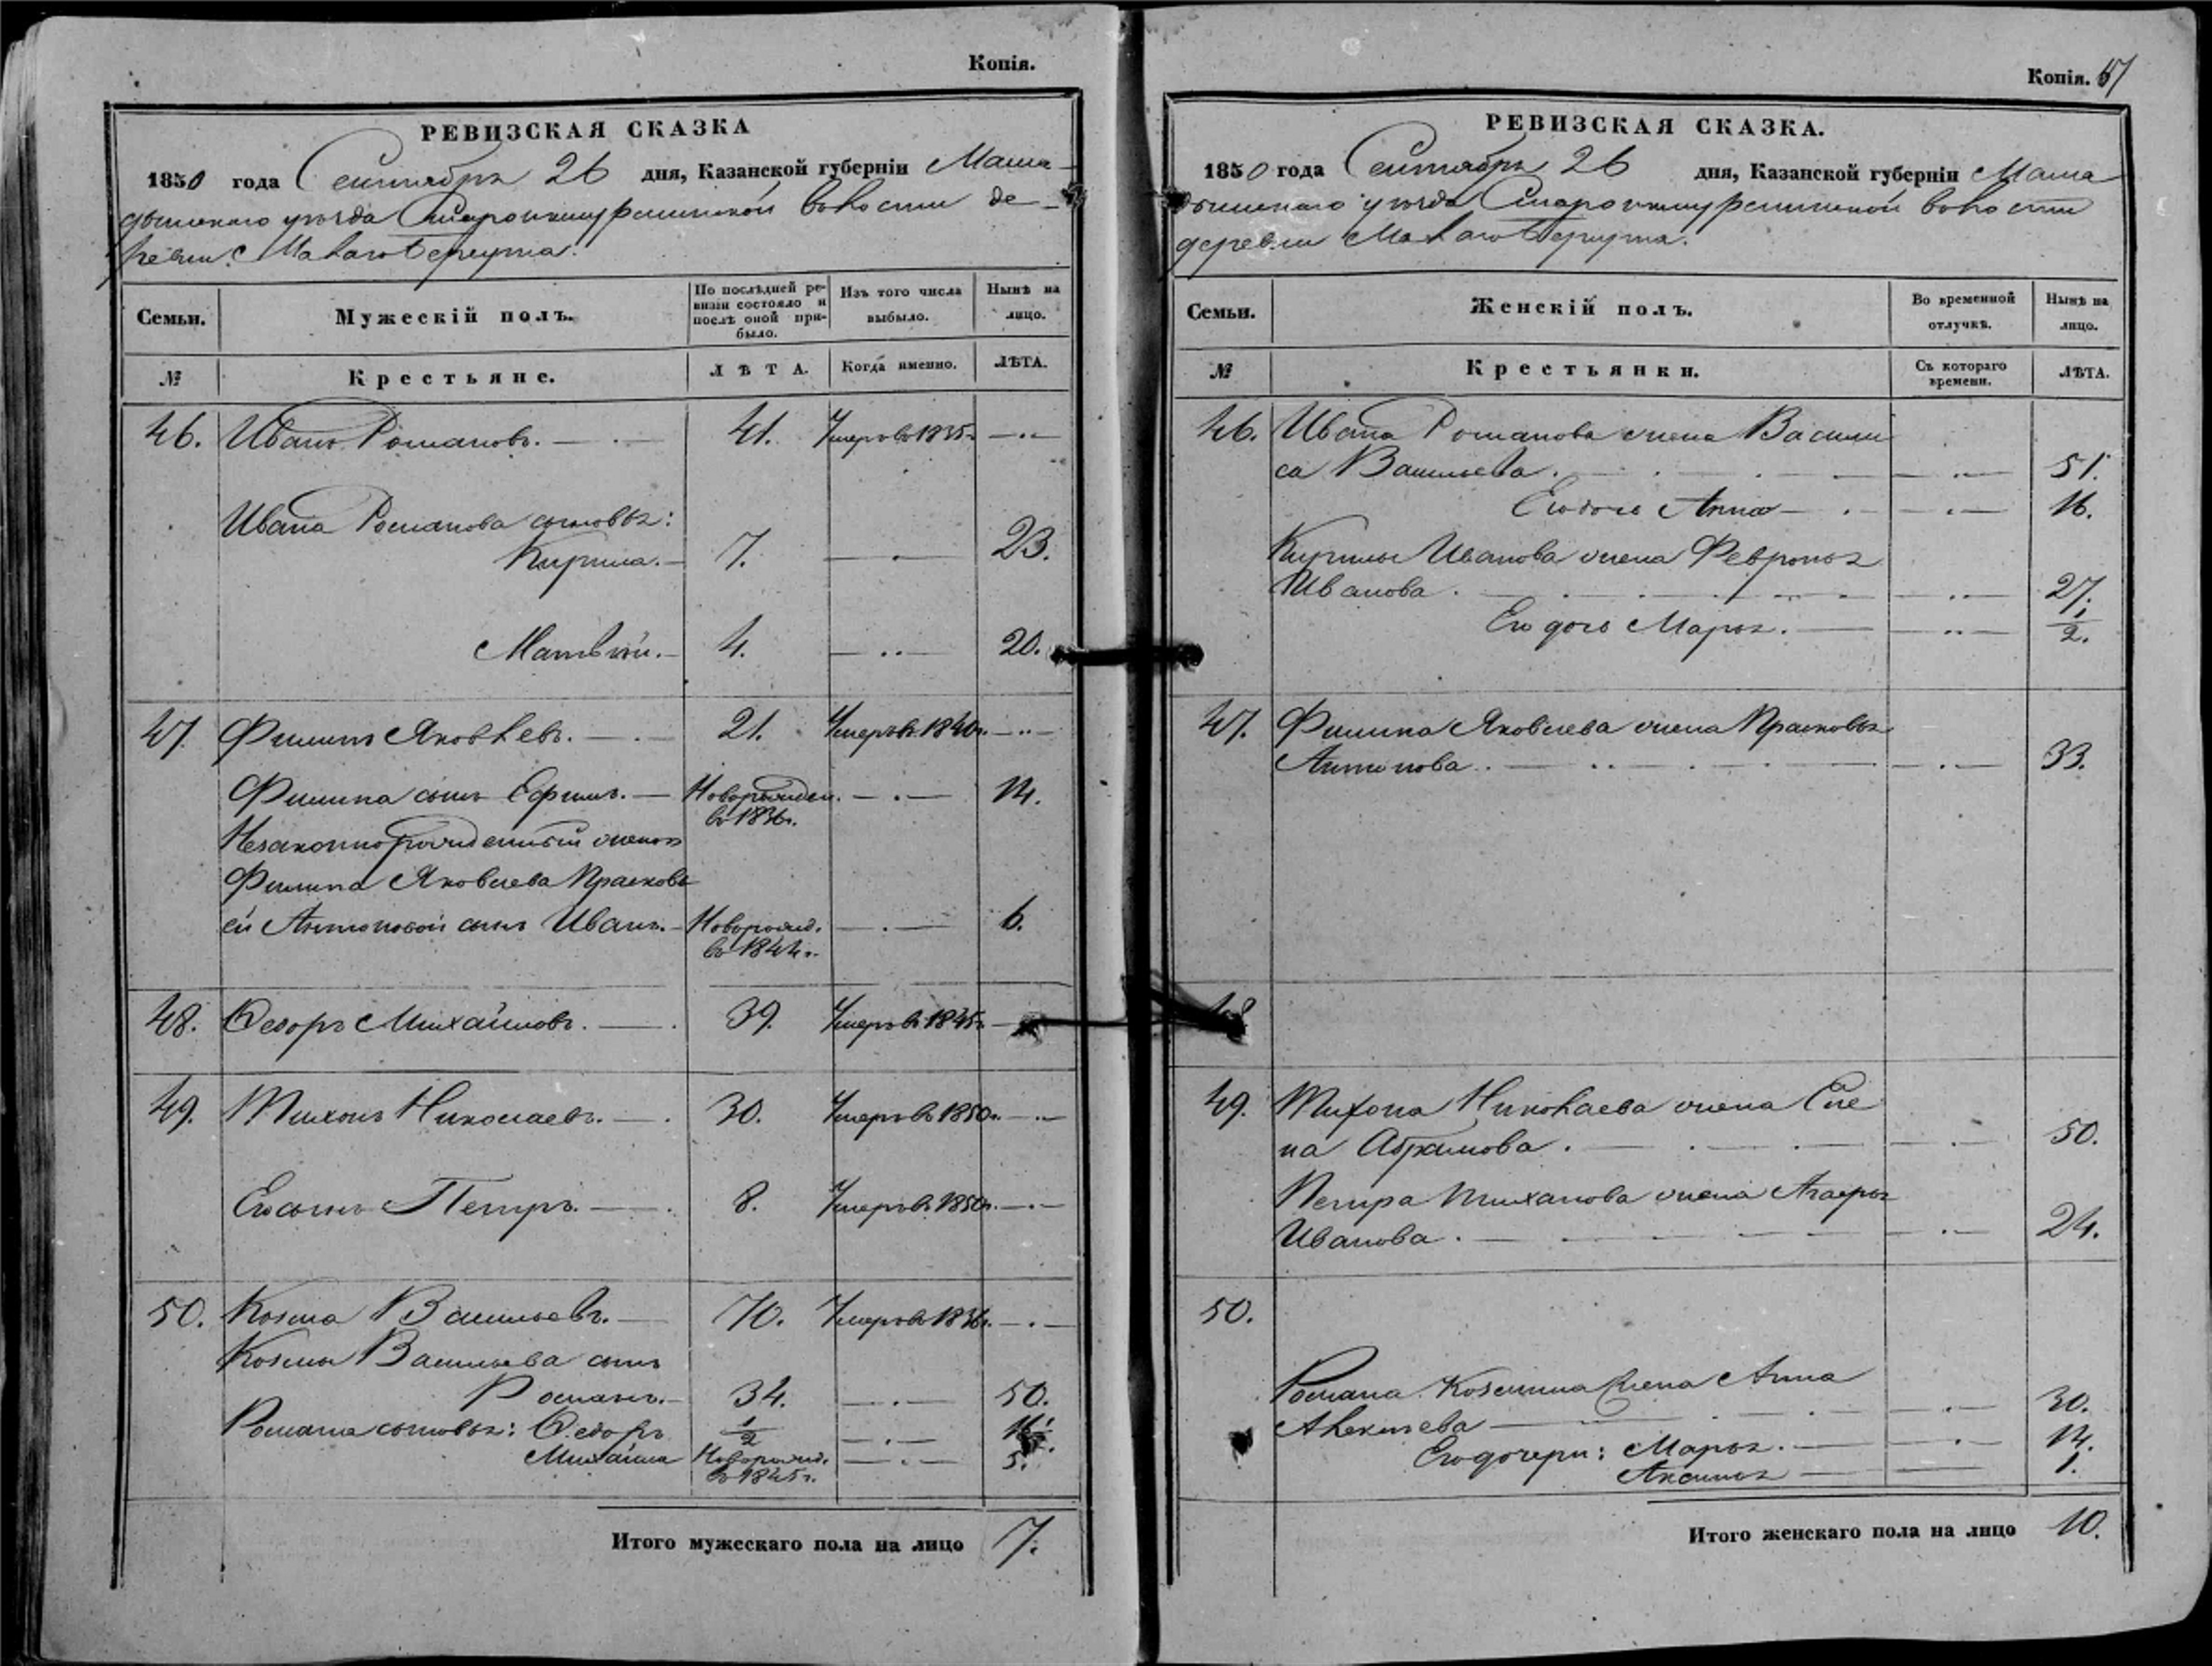 Копія.
РЕВИЗСКАЯ СКАЗКА
1850 года Сентября 26 дня, Казанской губерніи Мама-
дышскаго уѣзда волости де-
ревни
Семьи. Мужескій полъ. По послѣдней ре-визіи состояло и послѣ оной при-было. Изъ того числа выбыло. Нынѣ на лицо.
№ Крестьяне. ЛѢТА. Когда именно. ЛѢТА.
46. Иванъ Романовъ. 41. Умеръ въ 1835г.
Ивана Романова сыновья:
Кирила. 7. 23.
Матвѣй. 4. 20.
47. Филипъ Яковлевъ. 21. Умеръ въ 1840г.
Филипа сынъ Ефимъ. Новорожден. 14.
въ 1836г.
Незаконнорожденный женою
Филипа Яковлева Прасковь-
ей Антоновой сынъ Иванъ. Новорожд. 6.
въ 1844г.
48. Ѳедоръ Михайловъ. 39. Умеръ въ 1845г.
49. Тихонъ Николаевъ. 30. Умеръ въ 1850г.
Его сынъ Петръ. 8. Умеръ въ 1850г.
50. Козма Васильевъ. 70. Умеръ въ 1836г.
Козмы Васильева сынъ
Романъ. 34. 50.
Романа сыновья: Ѳедоръ 1/2
Михайла Новорожд. 5.
въ 1845г.
Итого мужескаго пола на лицо 7.
Копія. 57
РЕВИЗСКАЯ СКАЗКА.
1850 года Сентября 26 дня, Казанской губерніи Мама
дышскаго уѣзда волости
деревни
Семьи. Женскій полъ. Во временной отлучкѣ. Нынѣ на лицо.
№ Крестьянки. Съ котораго времени. ЛѢТА.
46. Ивана Романова жена Васили
са Васильева. 51.
Его дочь Анна 16.
Кирилы Иванова жена Февронья
Иванова. 27.
Его дочь Марья. 1/2.
47. Филипа Яковлева жена Прасковья
Антонова. 33.
48
49. Тихона Николаева жена Еле
на Абрамова. 50.
Петра Тиханова жена Агафья
Иванова. 24.
50.
Романа Козмина жена Анна
Алексѣева 30.
Его дочери: Марья. 14.
Аксинья 1.
Итого женскаго пола на лицо 10.